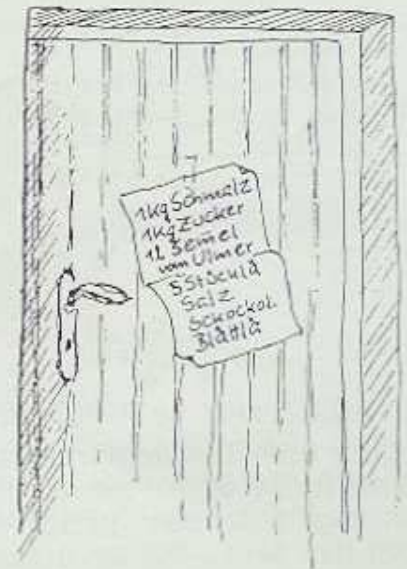 1kg Schmalz
1kg Zucker
12 Semel
vom Ulmer
5 Stöcklà
Salz
Schockol.
Blàttlà